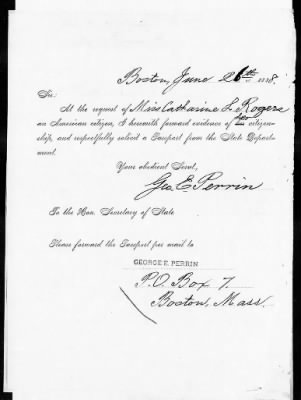 Boston, June 26th 1878.
Sir:
At the request of Miss Catharine L. Rogers
an American citizen, I herewith forward evidence of her citizen-
ship, and respectfully solicit a Passport from the State Depart-
ment.
Your obedient Servt,
Geo. E. Perrin
To the Hon. Secretary of State
Please forward the Passport per mail to
GEORGE E. PERRIN
P.O. Box 7.
Boston, Mass.